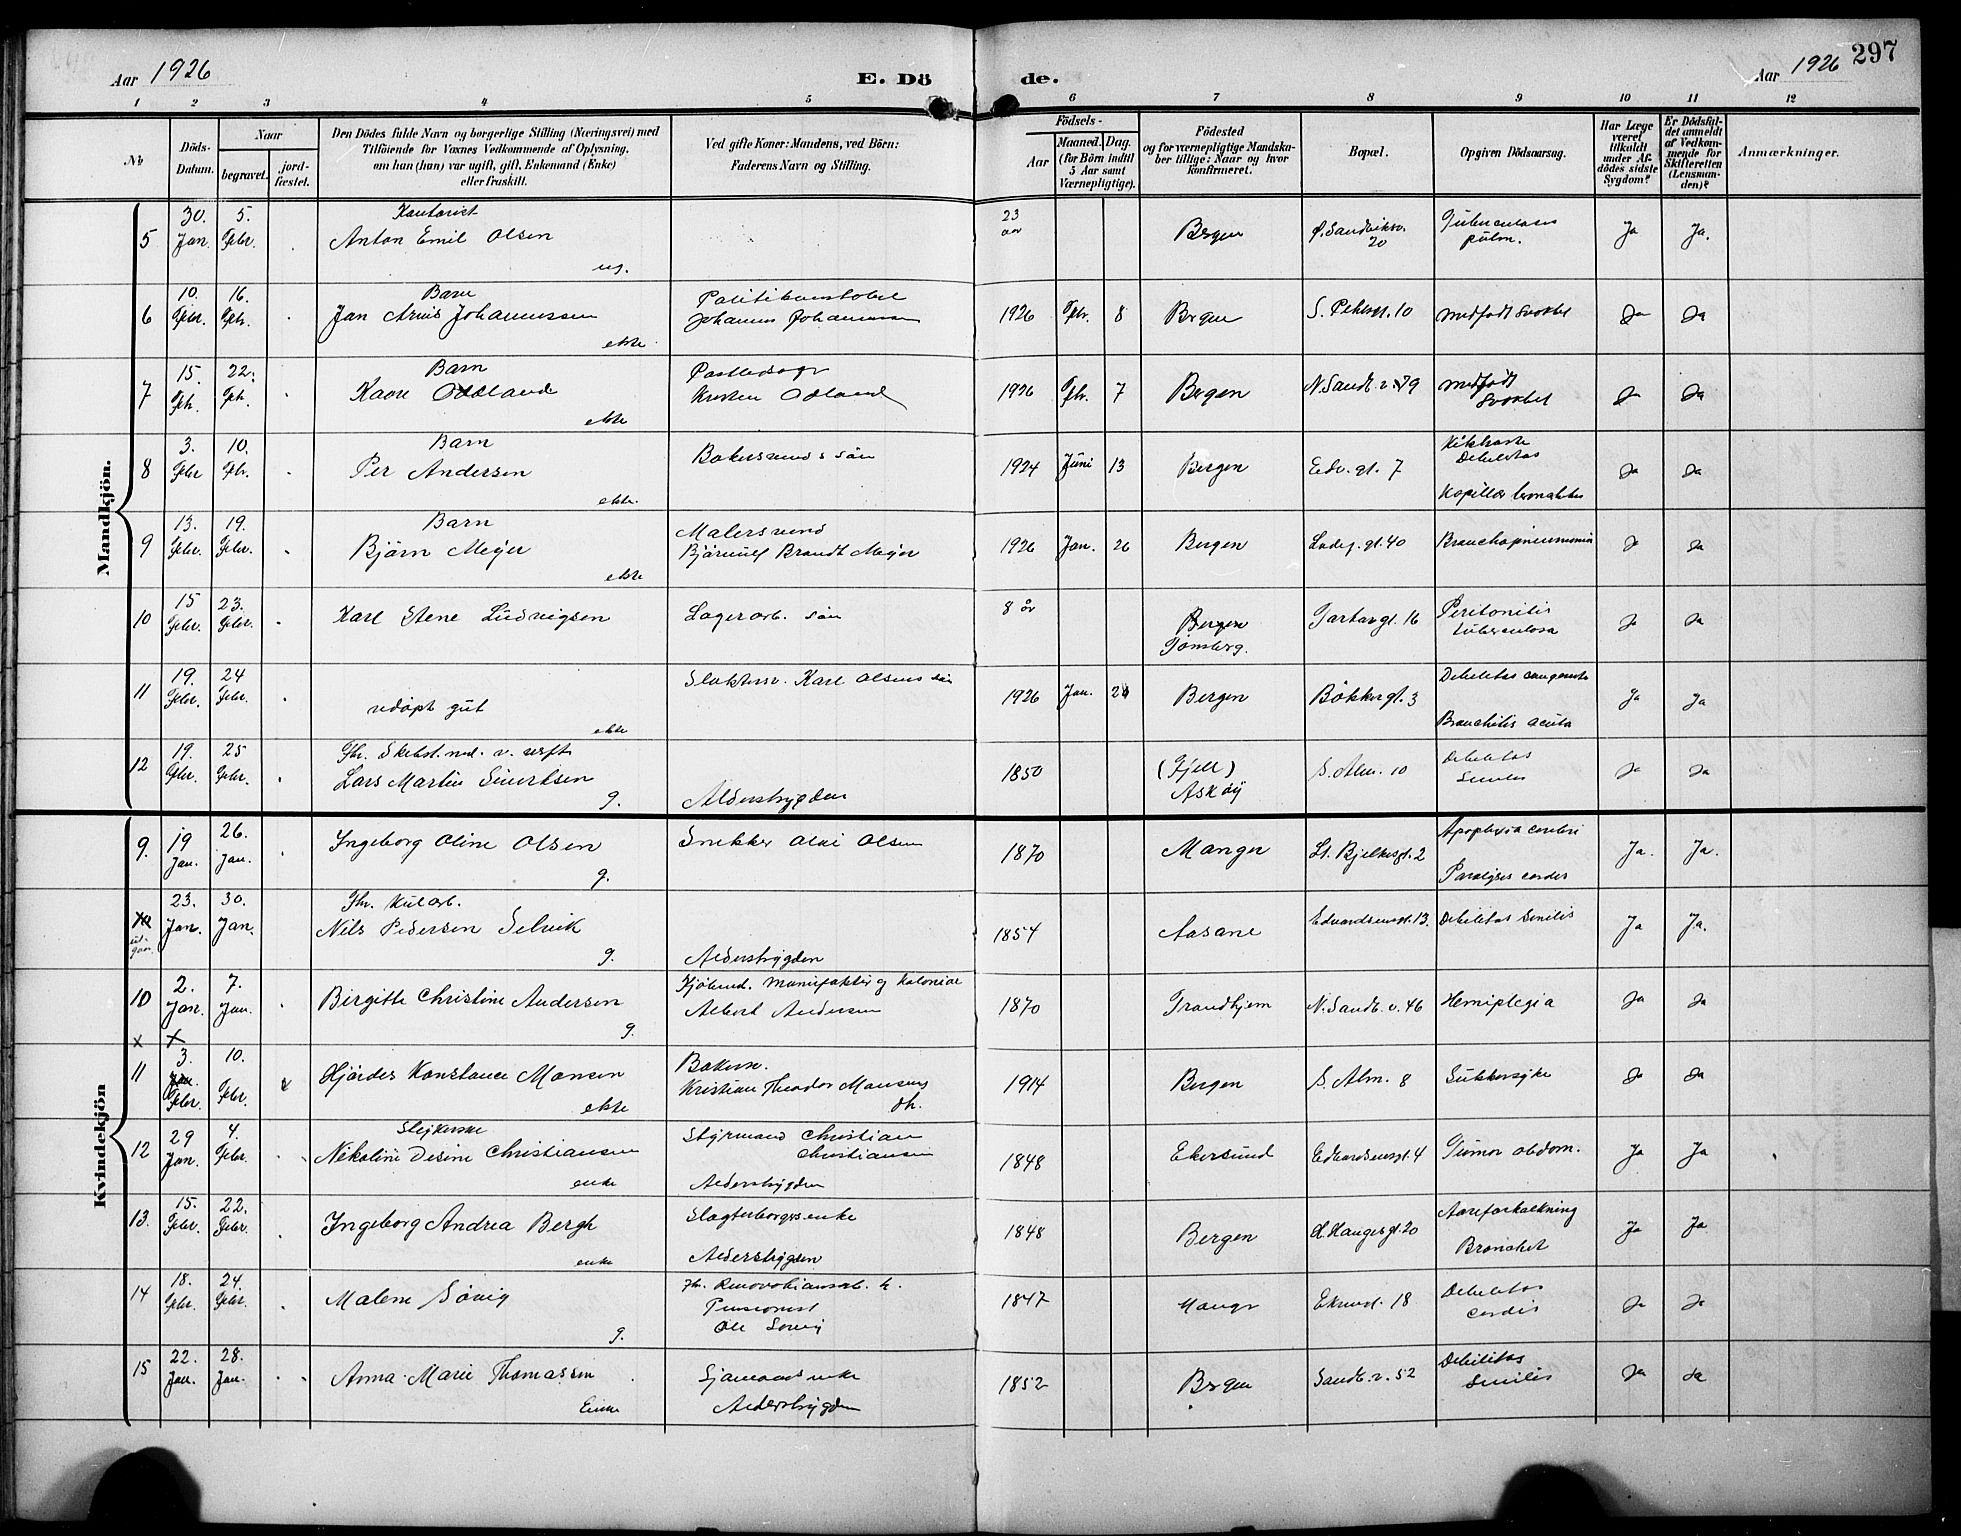 Aar 1926
E. Dö de.
Aar 1926 297
1 2 3 4 5 6 7 8 9 10 11 12
No
Döds-Datum.
Naar
begravet.
jord-fæstet.
Den Dödes fulde Navn og borgerlige Stilling (Næringsvei) med
Tilföiende for Voxnes Vedkommende af Oplysning,
om han (hun) var ugift, gift, Enkemand (Enke)
eller fraskilt.
Ved gifte Koner: Mandens, ved Börn:
Faderens Navn og Stilling.
Födsels-
Aar
Maaned. Dag.
(for Börn indtil
5 Aar samt
Værnepligtige).
Födested
og for værnepligtige Mandska-
ber tillige: Naar og hvor
konfirmeret.
Bopæl.
Opgiven Dödsaarsag.
Har Læge
været
tilkaldt
under Af-
dödes sidste
Sygdom?
Er Dödsfal-
det anmeldt
af Vedkom-
mende for
Skifteretten
(Lensman-
den)?
Anmærkninger.
Mandkjön.
5 30. Jan. 5. Febr. Kontorist
Anton Emil Olsen
ug. 23 aar Bergen Ø. Sandviksv. 20 Tuberculosis pulm. Ja Ja.
6 10. Febr. 16. Febr. Barn
Jan Arnis Johannessen
ekte Politikonstabel
Johannes Johannessen 1926 Febr. 8 Bergen S. Petersgt. 10 medfødt svakhet Ja Ja
7 15. Febr. 22. Febr. Barn
Kaare Odland
ekte Postbedsagr
Kristen Odland 1926 Febr. 7 Bergen N. Sandv. v. 79 medfødt svakhet Ja Ja
8 3. Febr. 10. Febr. Barn
Per Andersen
ekte. Bakersvends sön 1924 Juni 13 Bergen Edv. gt. 7 Kikhoste
Debilitas
Kapillær bronchitis Ja Ja
9 13. Febr. 19. Febr. Barn
Bjørn Meyer
ekte Malersvend
Bjørnulf Brandt Meyer 1926 Jan. 26 Bergen Ladeg. gt. 40 Bronchopneumonia Ja Ja
10 15 Febr. 23. Febr. Karl Stene Ludvigsen Lagerarb. sön 8 år Bergen
Tønsberg. Gartnergt. 16 Peritonitis
tuberculosa Ja Ja
11 19. Febr. 24 Febr. udøpt gut
ekte Slaktersv. Karl Olsens sön 1926 Jan. Bergen Bökkergt. 3 Debilitas congenita
Bronchitis acuta Ja Ja
12 19. Febr. 25 Febr. Fhr. Skibst.md. v. verft
Lars Martin Sivertsen
g. Alderstrygden 1850 (Fjell)
Askøy S. Alm. 10 Debilitas
Senilis Ja Ja
Kvindekjön
9. 19 Jan. 26. Jan. Ingeborg Oline Olsen
g. Snekker Olai Olsen 1870 Manger Lt. Bjelkesgt. 2 Apoplexia cerebri
Paralysis cordis Ja. Ja.
ud-gaar 23. Jan. 30. Jan. Fhr. Kularb.
Nils Pedersen Selvik
g. Alderstrygden 1854 Aasane Edvardsensgt. 13. Debilitas Senilis Ja Ja.
10 2. Jan. 7. Jan. Birgitte Christine Andersen
g. Kjøbmd. Manufaktur og Kolonial
Albert Andersen 1870 Trondhjem N. Sandv. v. 46 Hemiplegia Ja Ja
x x
11 3. Febr. 10. Febr. Hjørdis Konstance Monsen
ekte Bakersv.
Kristian Theodor Monsens
dh. 1914 Bergen S. Alm. 8 Sukkersyke Ja Ja
12 29 Jan. 4. Febr. Sleikerske
Nikoline Desine Christiansen
enke Styrmand Christian
Christiansen
Alderstrygden 1848 Ekersund Edvardsensgt. 4 Tumor abdom. Ja Ja
13. 15. Febr. 22. Febr. Ingeborg Andrea Bergh
enke Slagterborgersenke
Alderstrygden 1848 Bergen H. Haugesgt. 20 Aareforkalkning
Bronchit Ja Ja
14 18. Febr. 24. Febr. Malene Søvig
g. fh. Renovationsarb. h.
Pensionist
Ole Søvig 1847 Manger Ekrend. 18 Debilitas
cordis Ja Ja
15 22. Jan. 28. Jan. Anna Marie Thomassen
Enke Sjømands enke
Alderstrygden 1852 Bergen Sandv. v. 52 Debilitas
Senilis Ja Ja